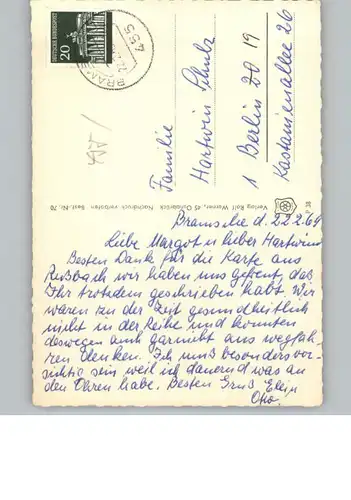 DEUTSCHE BUNDESPOST
20
455
BRAM
Familie
Hartwin Schulz
1 Berlin 19
Kastanienallee 26
Verlag Rolf Werner, 45 Osnabrück Nachdruck verboten Best.-Nr. 70
38
Bramsche d. 22.2.69
Liebe Margot u lieber Hartwin
Besten Dank für die Karte aus
wir haben uns gefreut, daß
Ihr trotzdem geschrieben habt. Wir
waren zu der Zeit gesundheitlich
nicht in der Reihe und konnten
deswegen auch garnicht ans wegfah-
ren denken. Ich muß besonders vor-
sichtig sein weil ich dauernd was an
den Ohren habe. Besten Gruß
Otto